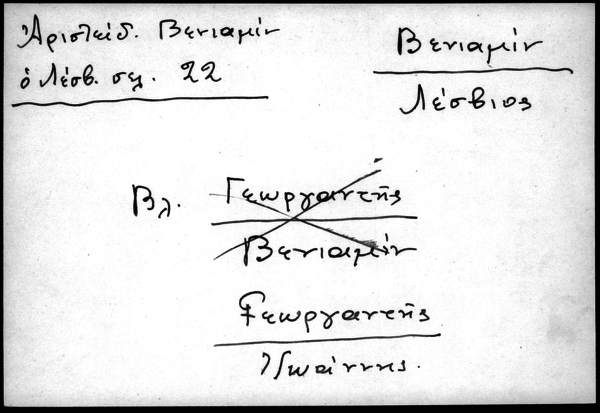 Ἀριστείδ. Βενιαμίν
ὁ Λέσβ. σελ. 22
Βενιαμίν
Λέσβιος
Βλ. Γεωργαντῆς
Βενιαμίν
Γεωργαντῆς
Ἰωάννης.